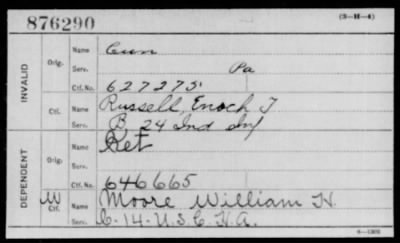 876290
(3-H-4)
INVALID
Orig.
Name Cun
Serv. Pa
Ctf. No. 627275
Ctf.
Name Russell, Enoch T
Serv. B 24 Ind Inf
DEPENDENT
Orig.
Name Ret
Serv.
Ctf. No. 646665
W
Ctf.
Name Moore William H.
Serv. C-14-U.S.C.H.A.